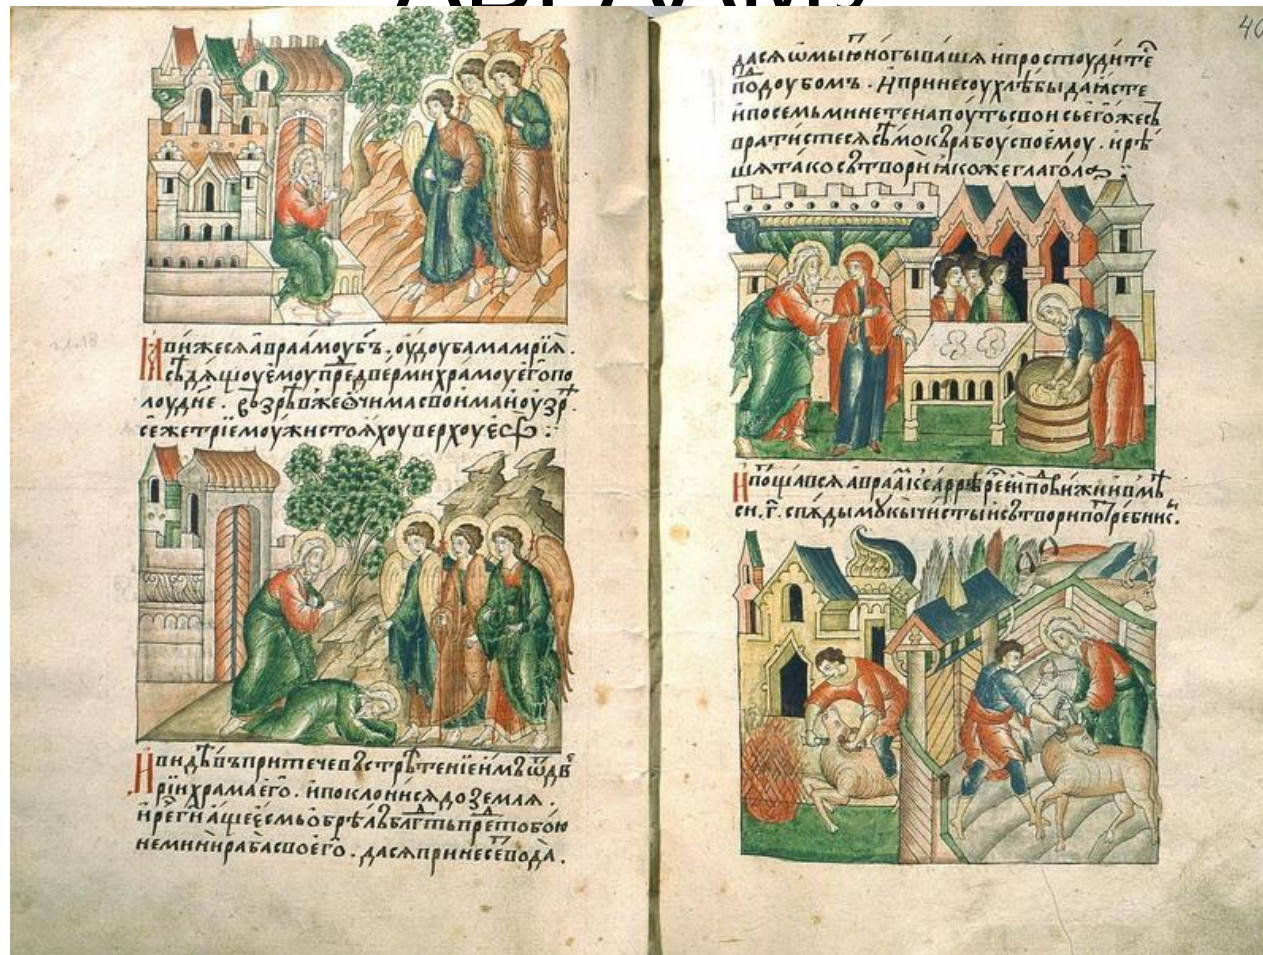 АВРААМУ
40
ꙗвижесѧ авраамоу бъ . оу доуба мамрїѧ .
сѣдѧщоу емоу пред двермн храмоу его по
лоуднѐ . възрѣв же очима своима и оузрѣ
се же трїе моужи стоѧхоу верхоу
И видѣвъ притече въ стрѣтенїе имъ
рїи храма его . и поклонисѧ до землѧ .
и реч аще есмь обрѣлъ блгть пред тобою
не мини раба своего . да сѧ принесе вода .
да сѧ омыю ногы ваша и простоудите
под доубом . И принесоу хлѣбы да ꙗсте
и по семь минете на поуть свои егоже
вратистесѧ сѣмо къ рабоу своемоу . и рѣ
ша тако сътвори ꙗкоже глагола
И потщавсѧ авраам к сарре рече еи
си . г . спѫды мꙋкы чисты и сътвори потребникы .